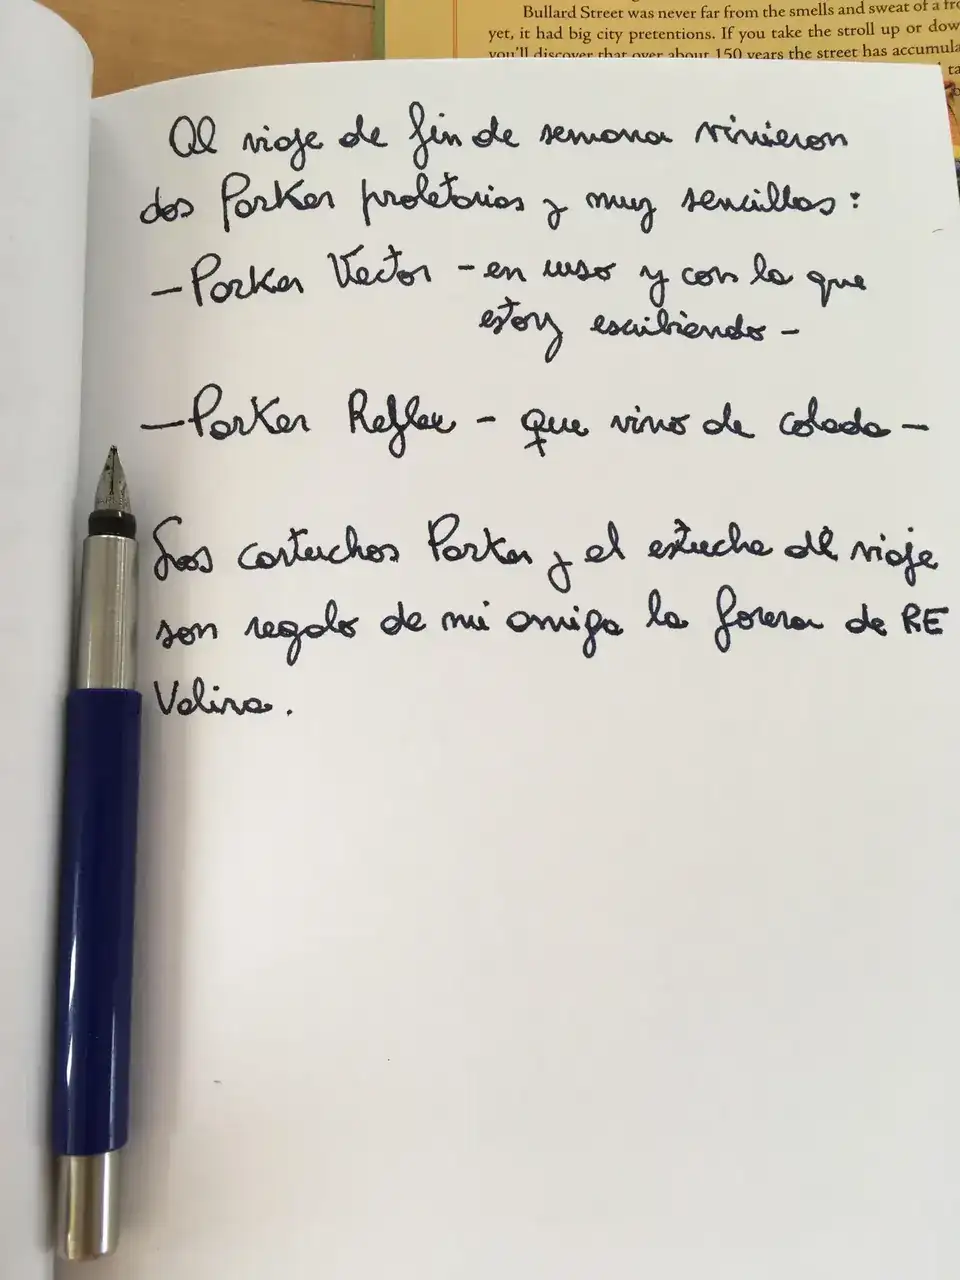 Bullard Street was never far from the smells and sweat of a fro
yet, it had big city pretentions. If you take the stroll up or dow
you'll discover that over about 150 years the street has accumula
ta
Al viaje de fin de semana vinieron
dos Parker proletarias y muy sencillas:
- Parker Vector - en uso y con la que
estoy escribiendo -
- Parker Reflex - que vino de colada -
Los cartuchos Parker y el estuche de viaje
son regalo de mi amiga la forera de RE
Valira.